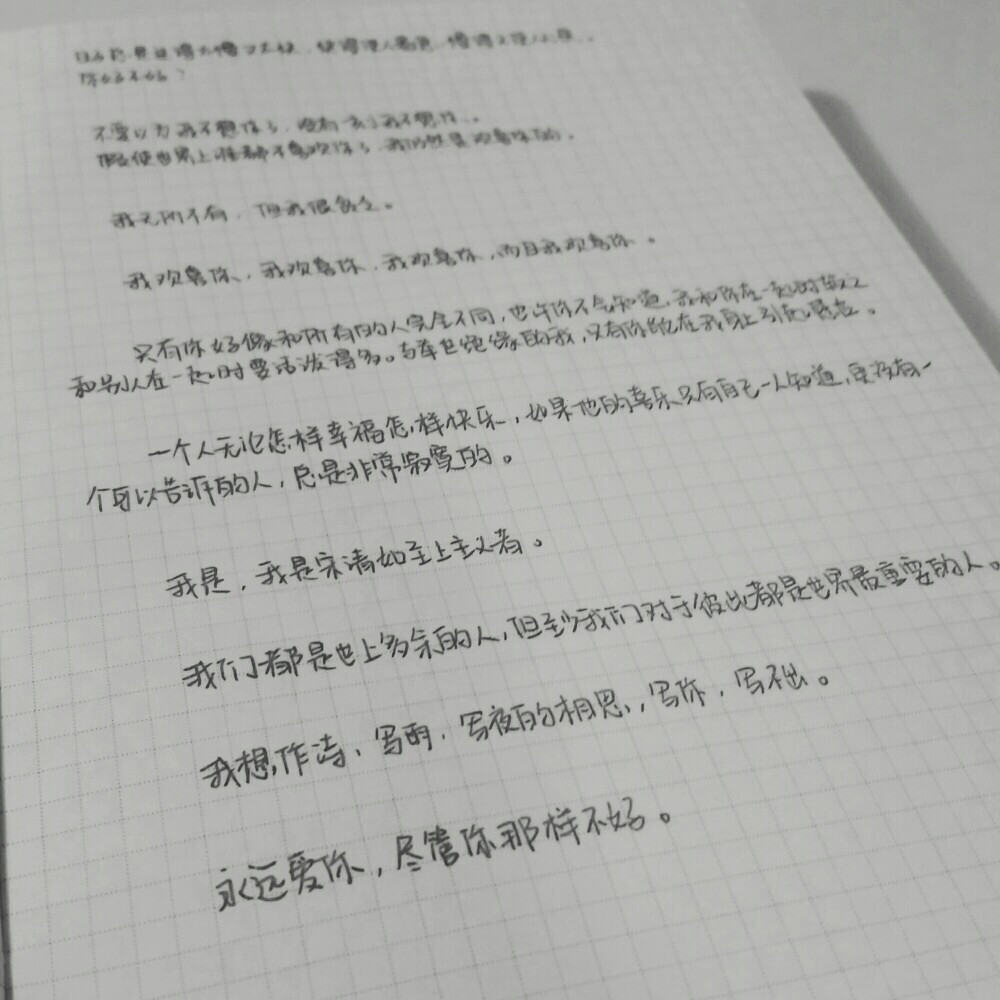 日子总是过得太慢又太快,快得
你好不好?
不要以为我不想你了,没有一刻我不想你。
假使世界上谁都不喜欢你了,我仍然是欢喜你的。
我无所不有,但我很贫乏。
我欢喜你,我欢喜你,我欢喜你,而且我欢喜你。
只有你好像和所有的人完全不同,也许你不会知道,我和你在一起时较之
和别人在一起时要活泼得多。与举世绝缘的我,只有你能在我身上引起感应。
一个人无论怎样幸福怎样快乐,如果他的喜乐只有自己一人知道,更没有一
个可以告诉的人,总是非常寂寞的。
我是,我是宋清如至上主义者。
我们都是世上多余的人,但至少我们对于彼此都是世界最重要的人。
我想作诗,写雨,写夜的相思,写你,写不出。
永远爱你,尽管你那样不好。